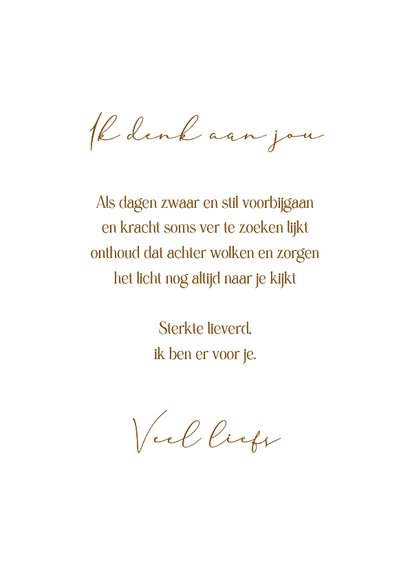 Ik denk aan jou
Als dagen zwaar en stil voorbijgaan
en kracht soms ver te zoeken lijkt
onthoud dat achter wolken en zorgen
het licht nog altijd naar je kijkt
Sterkte lieverd,
ik ben er voor je.
Veel liefs